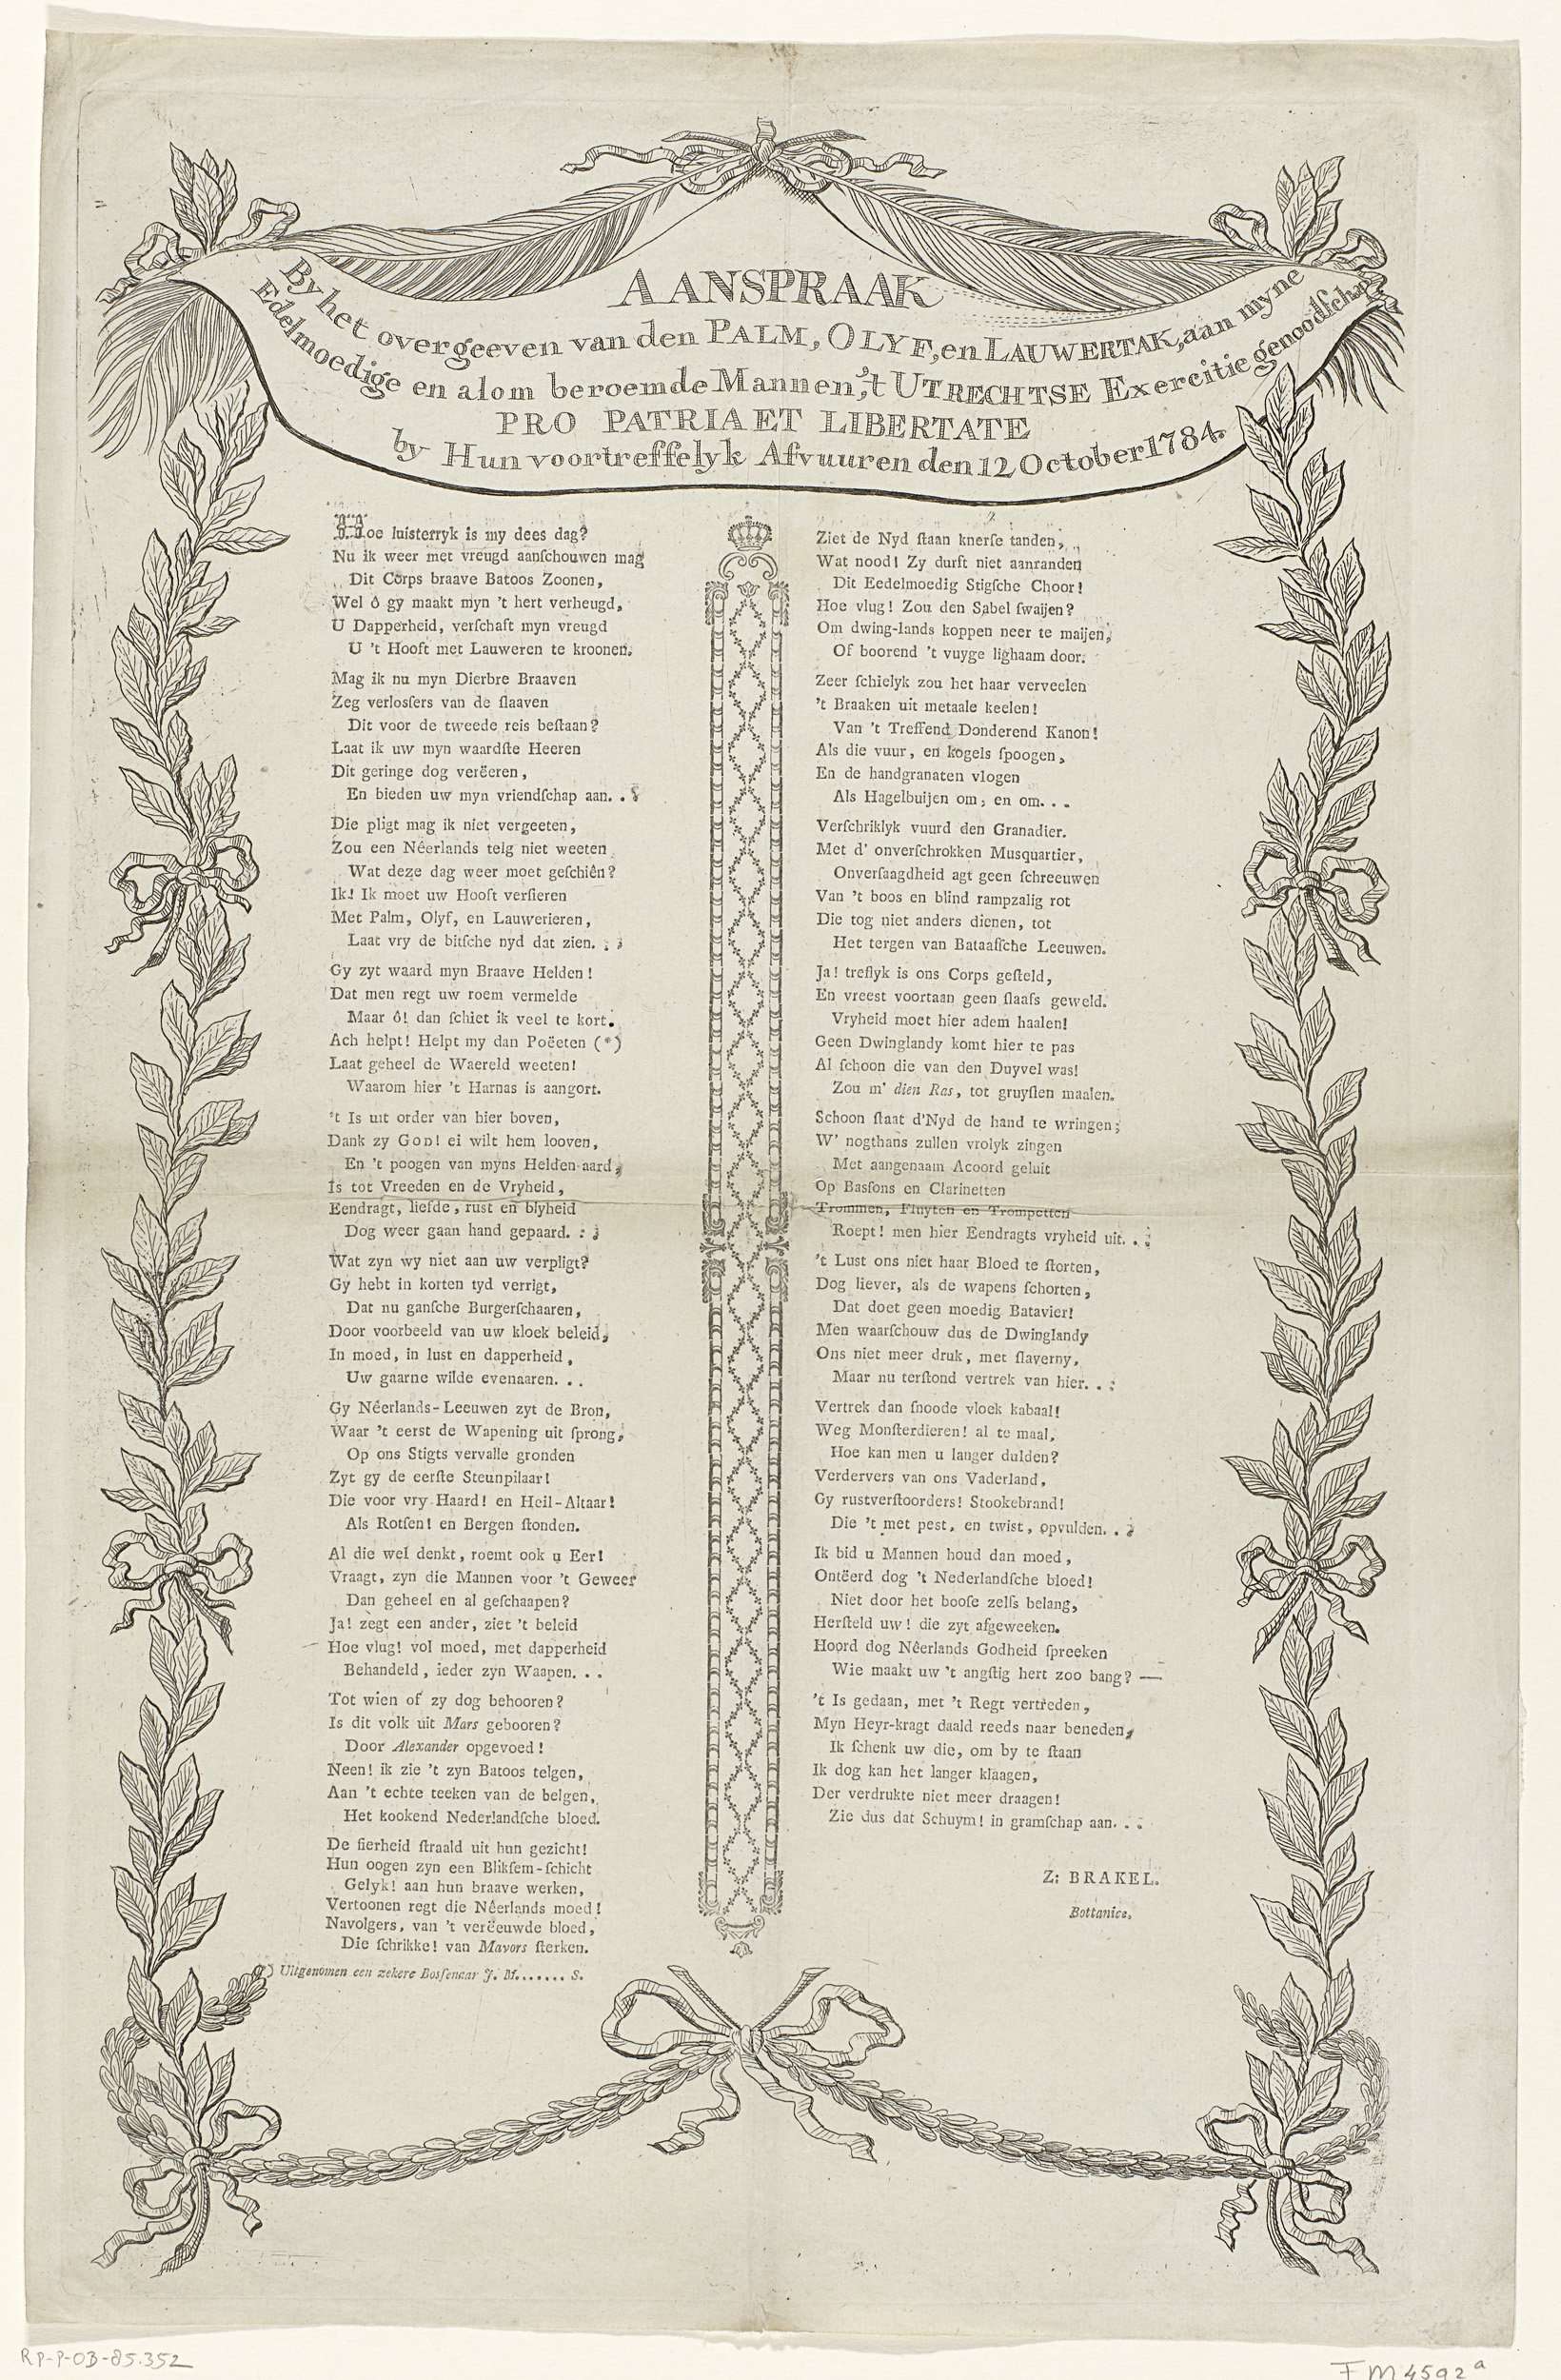 AANSPRAAK
By het overgeeven van den PALM, OLYF, en LAUWERTAK, aan myne
Edelmoedige en alom beroemde Mannen, 't UTRECHTSE Exercitie genoodſchap
PRO PATRIA ET LIBERTATE
by Hun voortreffelyk Afvuuren den 12 October 1784.
Hoe luisterryk is my dees dag?
Nu ik weer met vreugd aanſchouwen mag
Dit Corps braave Batoos Zoonen,
Wel ô gy maakt myn 't hert verheugd,
U Dapperheid, verſchaft myn vreugd
U 't Hooft met Lauweren te kroonen.
Mag ik nu myn Dierbre Braaven
Zeg verlosſers van de ſlaaven
Dit voor de tweede reis beſtaan?
Laat ik uw myn waardſte Heeren
Dit geringe dog verëeren,
En bieden uw myn vriendſchap aan. . .
Die pligt mag ik niet vergeeten,
Zou een Nêerlands telg niet weeten
Wat deze dag weer moet geſchiên?
Ik! Ik moet uw Hooft verſieren
Met Palm, Olyf, en Lauwerieren,
Laat vry de bitſche nyd dat zien. . .
Gy zyt waard myn Braave Helden!
Dat men regt uw roem vermelde
Maar ô! dan ſchiet ik veel te kort.
Ach helpt! Helpt my dan Poëeten (*)
Laat geheel de Waereld weeten!
Waarom hier 't Harnas is aangort.
't Is uit order van hier boven,
Dank zy GOD! ei wilt hem looven,
En 't poogen van myns Helden-aard,
Is tot Vreeden en de Vryheid,
Eendragt, liefde, rust en blyheid
Dog weer gaan hand gepaard. . .
Wat zyn wy niet aan uw verpligt?
Gy hebt in korten tyd verrigt,
Dat nu ganſche Burgerſchaaren,
Door voorbeeld van uw kloek beleid,
In moed, in lust en dapperheid,
Uw gaarne wilde evenaaren. . .
Gy Nêerlands-Leeuwen zyt de Bron,
Waar 't eerst de Wapening uit ſprong,
Op ons Stigts vervalle gronden
Zyt gy de eerſte Steunpilaar!
Die voor vry Haard! en Heil-Altaar!
Als Rotſen! en Bergen ſtonden.
Al die wel denkt, roemt ook u Eer!
Vraagt, zyn die Mannen voor 't Geweer
Dan geheel en al geſchaapen?
Ja! zegt een ander, ziet 't beleid
Hoe vlug! vol moed, met dapperheid
Behandeld, ieder zyn Waapen. . .
Tot wien of zy dog behooren?
Is dit volk uit Mars gebooren?
Door Alexander opgevoed!
Neen! ik zie 't zyn Batoos telgen,
Aan 't echte teeken van de belgen,
Het kookend Nederlandſche bloed.
De fierheid ſtraald uit hun gezicht!
Hun oogen zyn een Blikſem-ſchicht
Gelyk! aan hun braave werken,
Vertoonen regt die Nêerlands moed!
Navolgers, van 't verëeuwde bloed,
Die ſchrikke! van Mavors ſterken.
(*) Uitgenomen een zekere Bosſenaar J. M....... S.
Ziet de Nyd ſtaan knerſe tanden,
Wat nood! Zy durft niet aanranden
Dit Eedelmoedig Stigſche Choor!
Hoe vlug! Zou den Sabel ſwaijen?
Om dwing-lands koppen neer te maijen,
Of boorend 't vuyge lighaam door.
Zeer ſchielyk zou het haar verveelen
't Braaken uit metaale keelen!
Van 't Treffend Donderend Kanon!
Als die vuur, en kogels ſpoogen,
En de handgranaten vlogen
Als Hagelbuijen om, en om. . .
Verſchriklyk vuurd den Granadier.
Met d' onverſchrokken Musquartier,
Onverſaagdheid agt geen ſchreeuwen
Van 't boos en blind rampzalig rot
Die tog niet anders dienen, tot
Het tergen van Bataafſche Leeuwen.
Ja! treflyk is ons Corps geſteld,
En vreest voortaan geen ſlaafs geweld.
Vryheid moet hier adem haalen!
Geen Dwinglandy komt hier te pas
Al ſchoon die van den Duyvel was!
Zou m' dien Ras, tot gruyſlen maalen.
Schoon ſtaat d'Nyd de hand te wringen;
W' nogthans zullen vrolyk zingen
Met aangenaam Acoord geluit
Op Basſons en Clarinetten
Trommen, Fluyten en Trompetten
Roept! men hier Eendragts vryheid uit. . .
't Lust ons niet haar Bloed te ſtorten,
Dog liever, als de wapens ſchorten,
Dat doet geen moedig Batavier!
Men waarſchouw dus de Dwinglandy
Ons niet meer druk, met ſlaverny,
Maar nu terſtond vertrek van hier. . .
Vertrek dan ſnoode vloek kabaal!
Weg Monſterdieren! al te maal,
Hoe kan men u langer dulden?
Verdervers van ons Vaderland,
Gy rustverſtoorders! Stookebrand!
Die 't met pest, en twist, opvulden. . .
Ik bid u Mannen houd dan moed,
Ontëerd dog 't Nederlandſche bloed!
Niet door het booſe zelfs belang,
Herſteld uw! die zyt afgeweeken.
Hoord dog Nêerlands Godheid ſpreeken
Wie maakt uw 't angſtig hert zoo bang? —
't Is gedaan, met 't Regt vertreden,
Myn Heyr-kragt daald reeds naar beneden,
Ik ſchenk uw die, om by te ſtaan
Ik dog kan het langer klaagen,
Der verdrukte niet meer draagen!
Zie dus dat Schuym! in gramſchap aan. . .
Z: BRAKEL.
Bottanice.
RP-P-OB-85.352
FM 4592 a